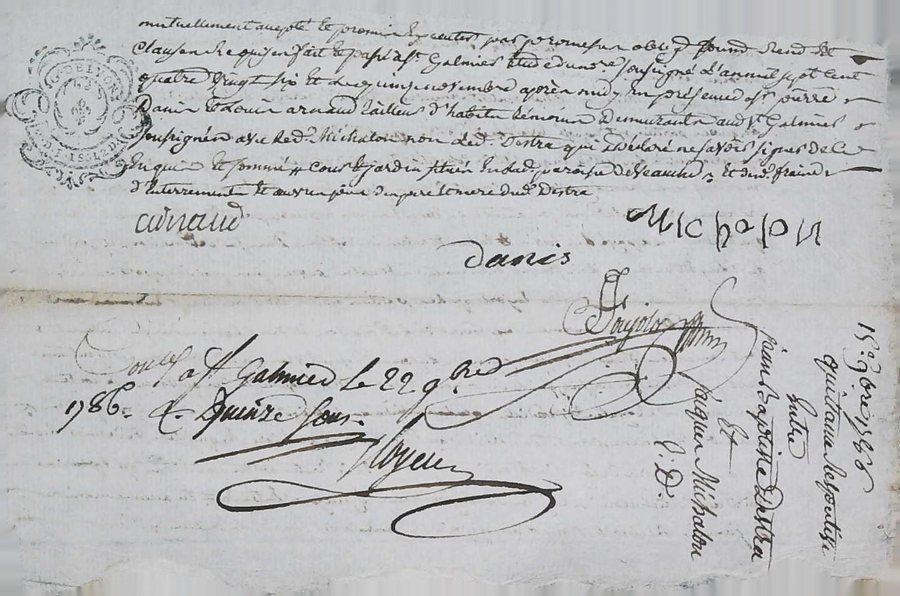 mutuellement accepté et promis executer par promesse oblig.ᵒⁿ soumis.ᵒⁿ renᵒⁿ et
clauses Requises fait et passé a Sᵗ Galmier Etude du nore soussigné L'an mil sept Cent
quatre vingt six et le quinze novembre après midy En présence de Sʳ pierre
Danis et Louis arnaud tailleur d'habits temoins demeurants aud. Sᵗ Galmier
soussignés avec led. Michalon non led. Destra qui a déclaré ne savoir signer de ce
Enquis et sommé cour et jardin situés En lad. paroisse de Veauche et des fraix
d'enterrement des pere et mere dud. Destra
arnaud
Michalon
danis
Conlé a Sᵗ Galmier Le 22 9bre
1786. R. Quinze Sous
15.ᵉ 9bre 1786
quittance
Entre
jean Baptiste Destra
Et
jacques Michalon
E. D.